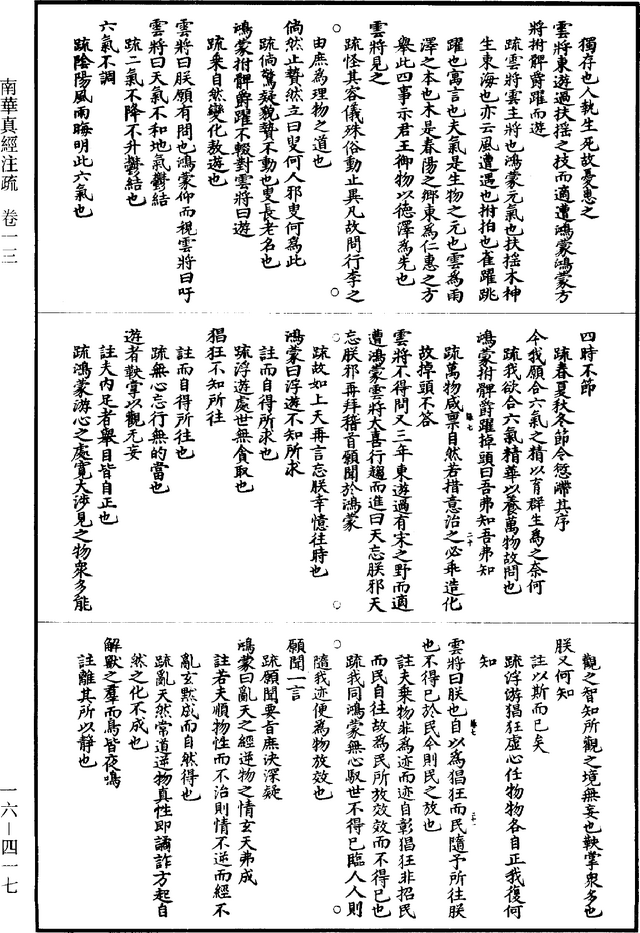 獨存也人執生死故憂患之
雲將東遊過扶搖之枝而適遭鴻蒙鴻蒙方
將拊髀爵躍而遊
疏雲將雲主將也鴻蒙元氣也扶搖木神
生東海也亦云風遭遇也拊拍也雀躍跳
躍也寓言也夫氣是生物之元也雲為雨
澤之本也木是春陽之鄉東為仁惠之方
舉此四事示君王御物以德澤為先也
雲將見之
疏怪其容儀殊俗動止異凡故問行李之
由庶為理物之道也
倘然止贄然立曰叟何人邪叟何為此
疏倘驚疑貌贄不動也叟長老名也
鴻蒙拊髀爵躍不輟對雲將曰遊
疏乘自然變化敖遊也
雲將曰朕願有問也鴻蒙仰而視雲將曰吁
雲將曰天氣不和地氣鬱結
疏二氣不降不升鬱結也
六氣不調
疏陰陽風雨晦明此六氣也
四時不節
疏春夏秋冬節令愆滯其序
今我願合六氣之精以育群生為之奈何
疏我欲合六氣精華以養萬物故問也
鴻蒙拊髀爵躍掉頭曰吾弗知吾弗知
疏萬物咸稟自然若措意治之必乖造化
故掉頭不答
雲將不得問又三年東遊過有宋之野而適
遭鴻蒙雲將大喜行趨而進曰天忘朕邪天
忘朕邪再拜稽首願聞於鴻蒙
疏故如上天再言忘朕幸憶往時也
鴻蒙曰浮遊不知所求
註而自得所求也
疏浮遊處世無貪取也
猖狂不知所往
註而自得所往也
疏無心忘行無的當也
遊者鞅掌以觀無妄
註夫內足者舉目皆自正也
疏鴻蒙游心之處寬大涉見之物衆多能
觀之智知所觀之境無妄也鞅掌衆多也
朕又何知
註以斯而已矣
疏浮游猖狂虛心任物物各自正我復何
知
雲將曰朕也自以為猖狂而民隨予所往朕
也不得已於民今則民之放也
註夫乘物非為迹而迹自彰猖狂非招民
而民自往故為民所放效而不得已也
疏我同鴻蒙無心馭世不得已臨人人則
隨我迹便為物放效也
願聞一言
疏願聞要旨庶決深疑
鴻蒙曰亂天之經逆物之情玄天弗成
註若夫順物性而不治則情不逆而經不
亂玄默成而自然得也
疏亂天然常道逆物真性即譎詐方起自
然之化不成也
解獸之羣而鳥皆夜鳴
註離其所以靜也
南華真經注疏 卷一三
一六－四一七